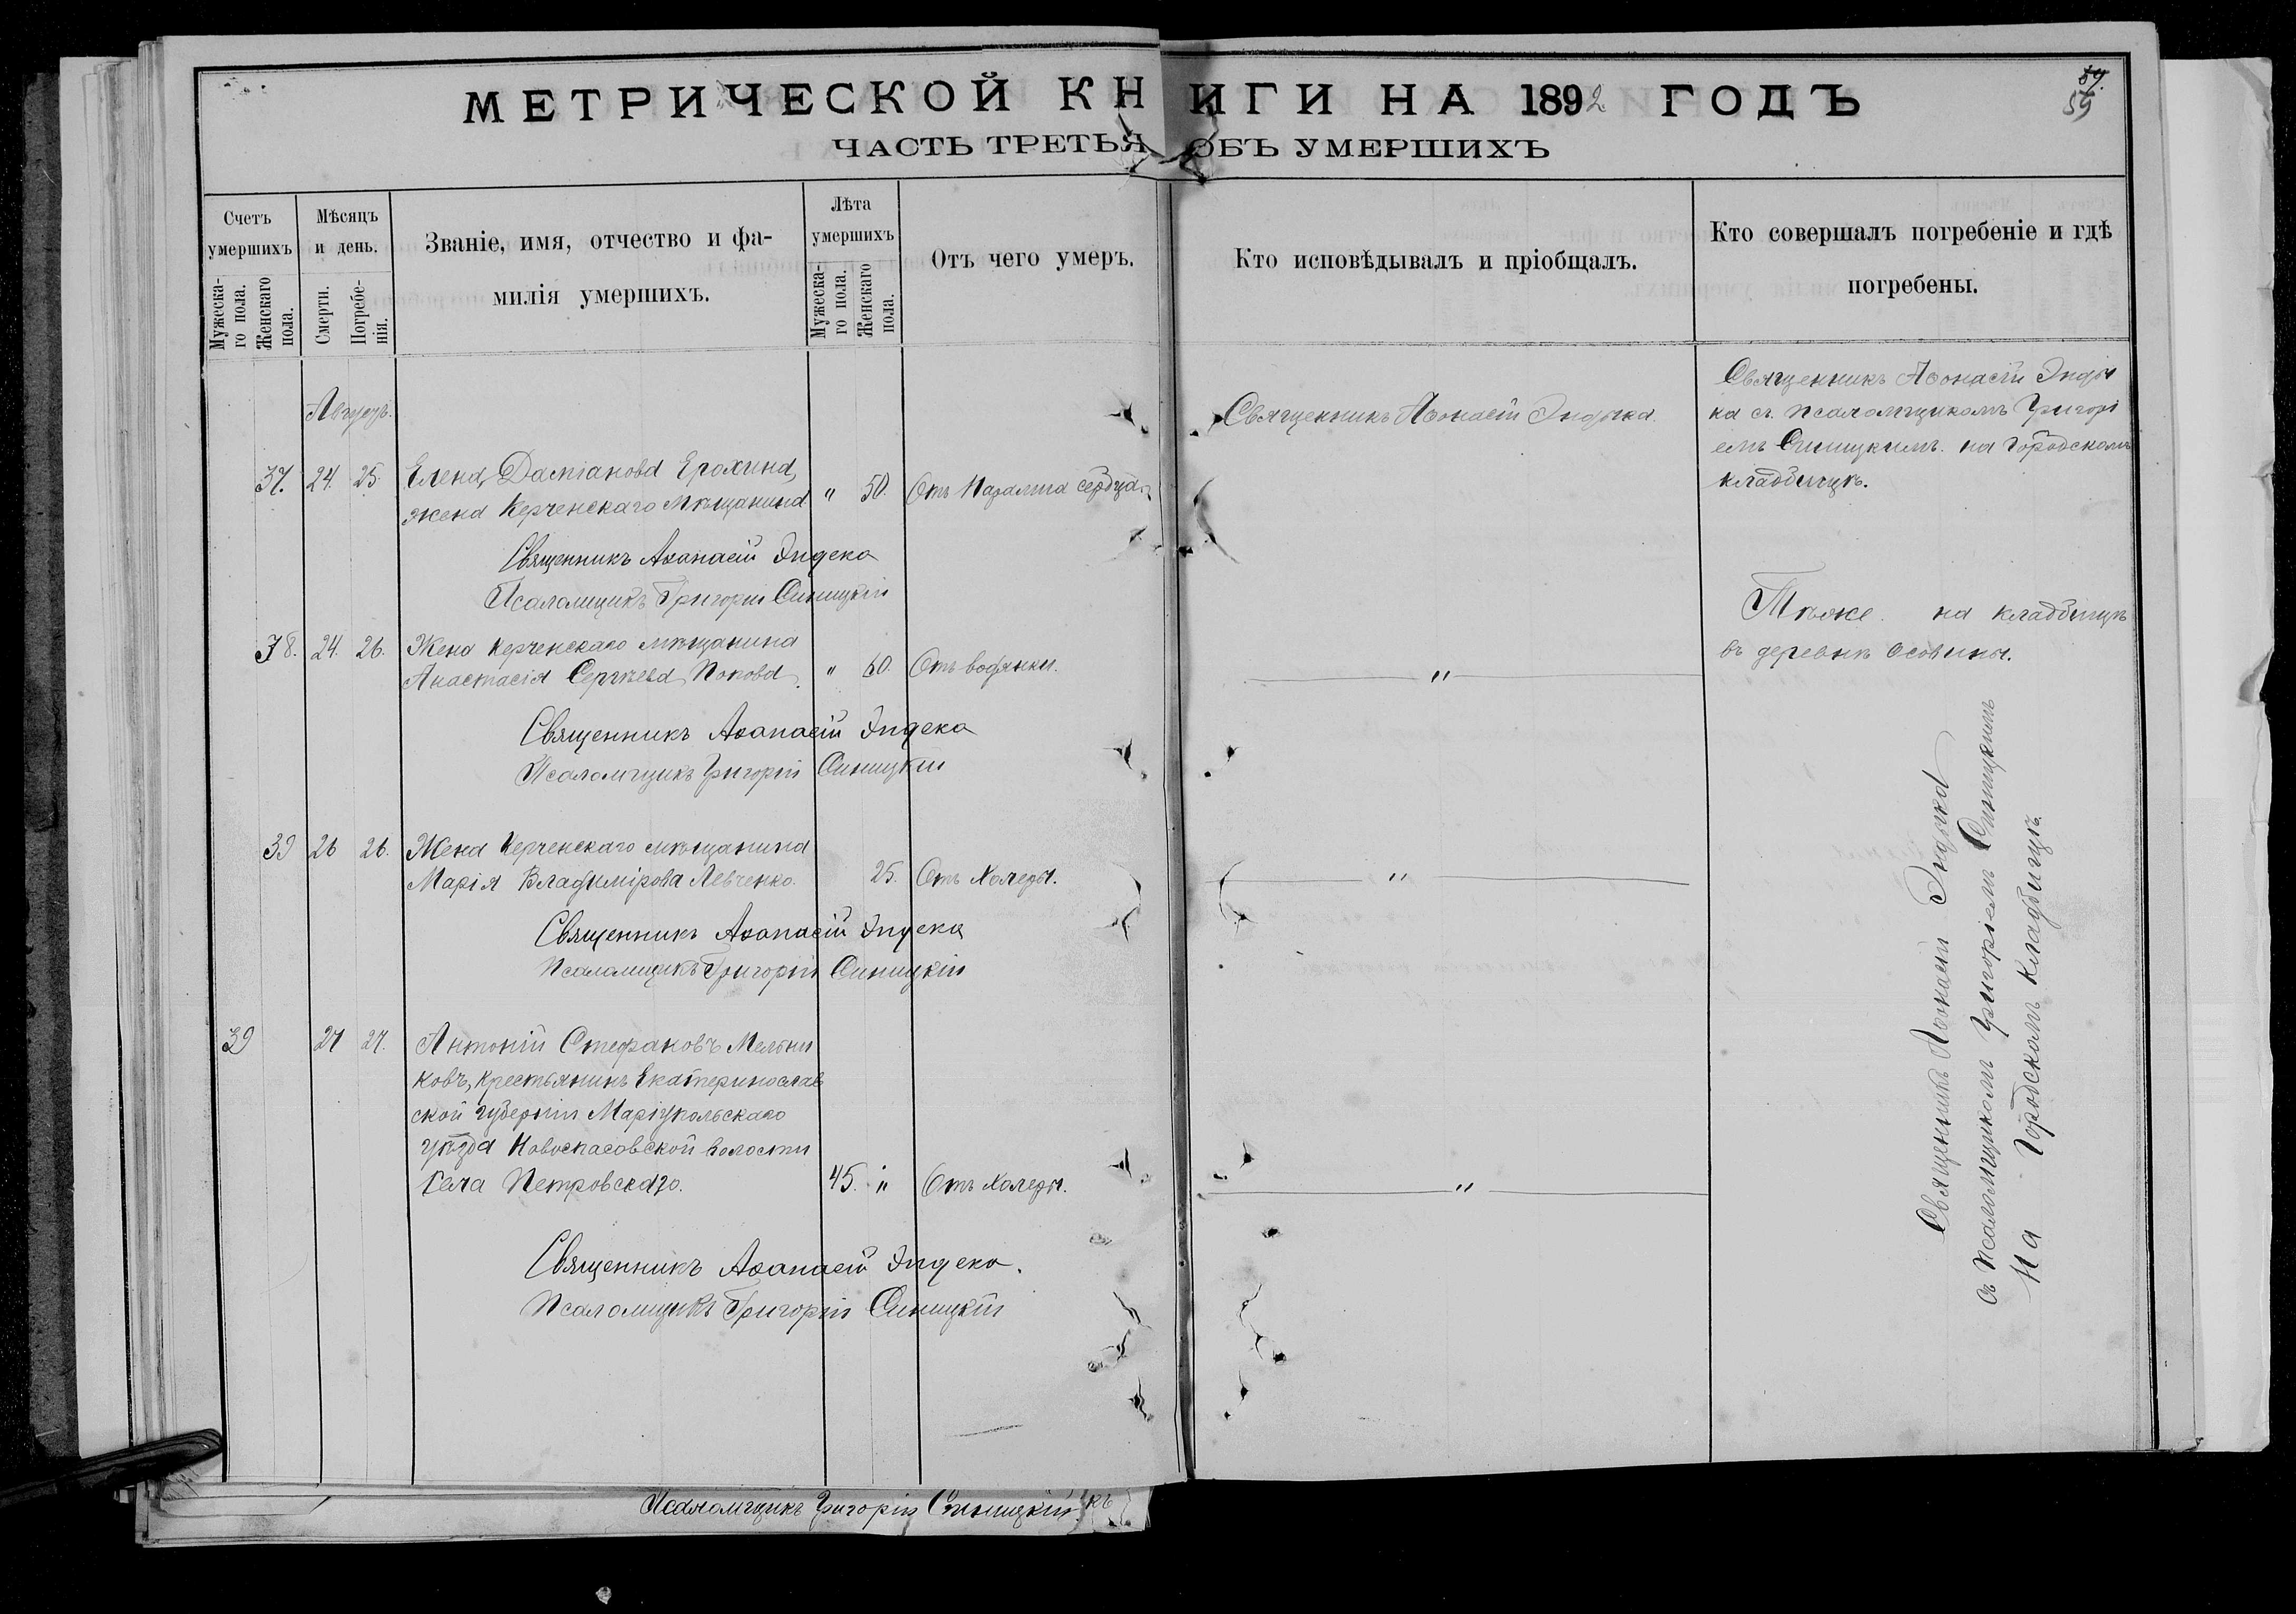 МЕТРИЧЕСКОЙ КНИГИ НА 1892 ГОДЪ
59
ЧАСТЬ ТРЕТЬЯ ОБЪ УМЕРШИХЪ
Счетъ умершихъ
Мужескаго пола.
Женскаго пола.
Мѣсяцъ и день.
Смерти.
Погребенія.
Званіе, имя, отчество и фамилія умершихъ.
Лѣта умершихъ
Мужескаго пола.
Женскаго пола.
Отъ чего умеръ.
Кто исповѣдывалъ и пріобщалъ.
Кто совершалъ погребеніе и гдѣ погребены.
Августъ.
37. 24. 25. Елена Даміанова Ерохина,
жена Керченскаго Мѣщанина " 50. Отъ Паралича сердца.
Священникъ Аѳонасій Индыка
Священникъ Аѳонасій Инды
ка съ псаломщикомъ Григорі
емъ Синицкимъ на Городскомъ
кладбищѣ.
Священникъ Аѳанасій Индека
Псаломщикъ Григорій Синицкій
38. 24. 26. Жена Керченскаго мѣщанина
Анастасія Сергѣева Попова. " 60. Отъ водянки.
"
Тѣже. на кладбищѣ
въ деревнѣ Осовины.
Священникъ Аѳанасій Индека
Псаломщикъ Григорій Синицкій
39 26 26. Жена Керченскаго мѣщанина
Марія Владимірова Левченко. 25. Отъ Холеры.
"
Священникъ Аѳанасій Индека
Псаломщикъ Григорій Синицкій
39 27 27. Антоній Стефановъ Мельни
ковъ, Крестьянинъ Екатеринослав
ской губерніи Маріупольскаго
уѣзда Новоспасовской волости
села Петровскаго. 45. " Отъ Холеры.
"
Священникъ Аѳонасій Индыка
съ Псаломщикомъ Григоріемъ Синицкимъ
На Городскомъ Кладбищѣ.
Священникъ Аѳанасій Индека.
Псаломщикъ Григорій Синицкій
Псаломщикъ Григорій Синицкій.